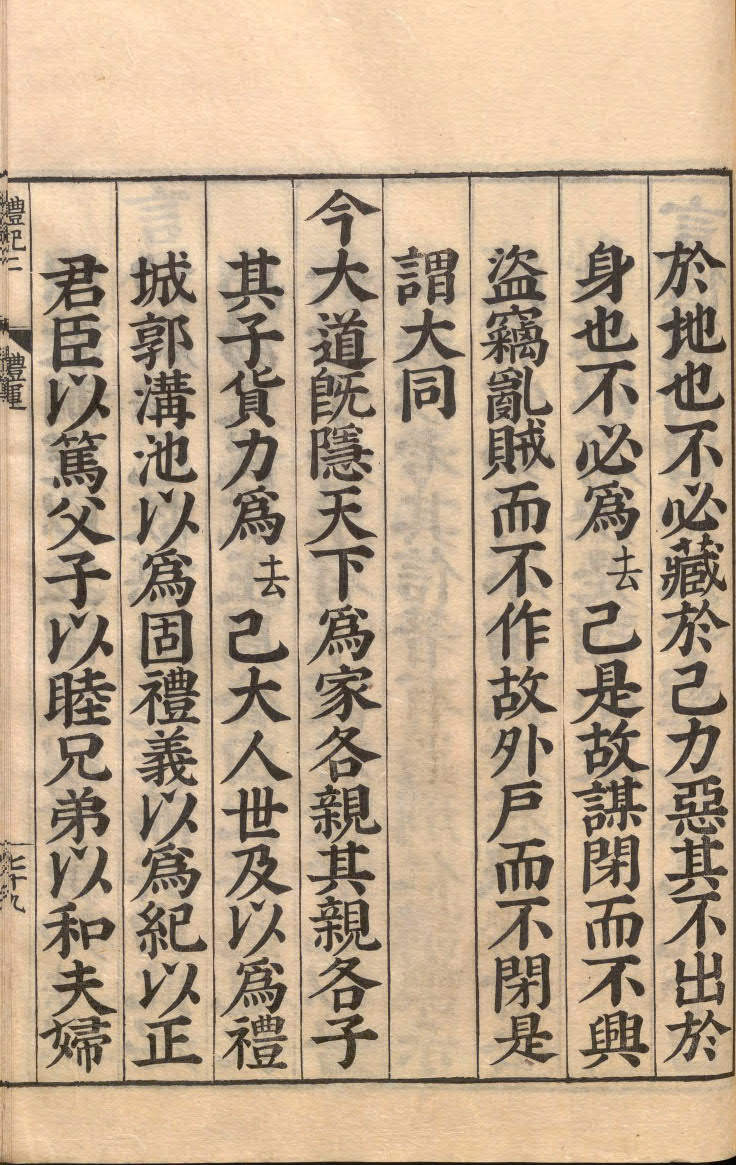 於地也不必藏於己力惡其不出於
身也不必爲去己是故謀閉而不興
盜竊亂賊而不作故外戶而不閉是
謂大同
今大道旣隱天下爲家各親其親各子
其子貨力爲去己大人世及以爲禮
城郭溝池以爲固禮義以爲紀以正
君臣以篤父子以睦兄弟以和夫婦
禮記二
禮運
七十九